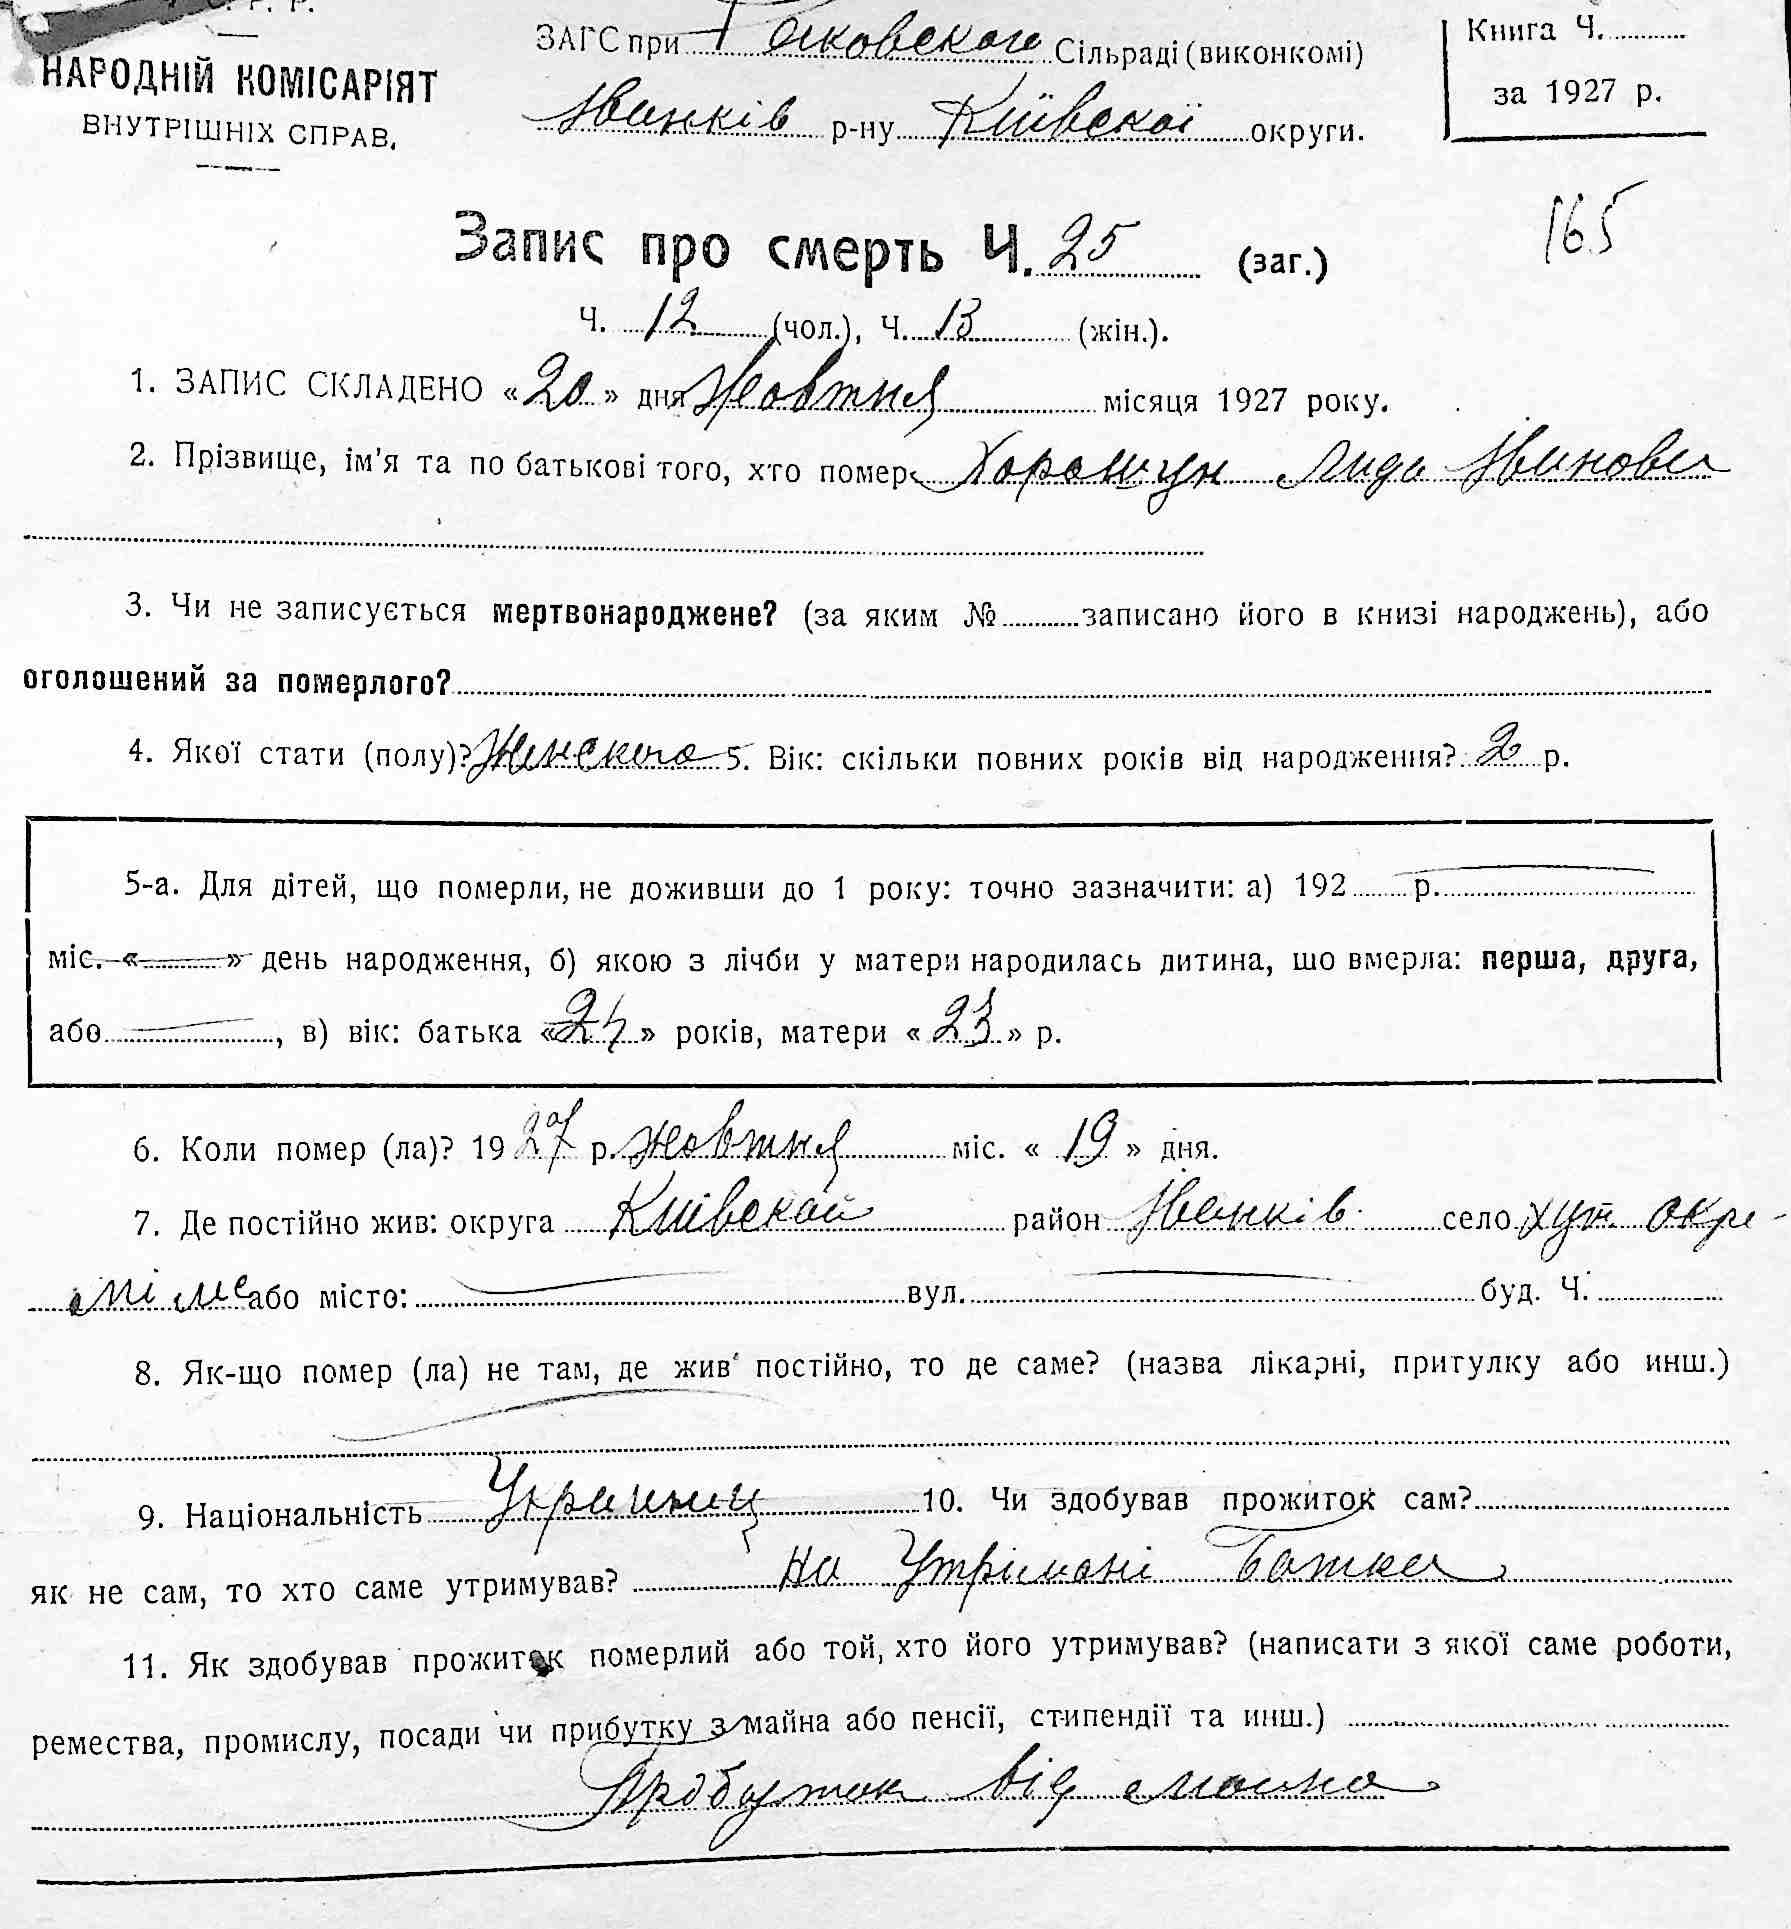 Р. Р.
НАРОДНІЙ КОМІСАРІЯТ
ВНУТРІШНІХ СПРАВ.
ЗАГС при Сільраді (виконкомі)
Іванків р-ну Київскої округи.
Книга Ч.
за 1927 р.
165
Запис про смерть Ч. 25 (заг.)
Ч. 12 (чол.), Ч. 13 (жін.).
1. ЗАПИС СКЛАДЕНО «20» дня Жовтня місяця 1927 року.
2. Прізвище, ім'я та по батькові того, хто помер Хорошун Лида Іванова
3. Чи не записується мертвонароджене? (за яким № записано його в книзі народжень), або
оголошений за померлого?
4. Якої стати (полу)? Женского 5. Вік: скільки повних років від народження? 2 р.
5-а. Для дітей, що померли, не доживши до 1 року: точно зазначити: а) 192 р.
міс. « » день народження, б) якою з лічби у матери народилась дитина, що вмерла: перша, друга,
або , в) вік: батька «24» років, матери «23» р.
6. Коли помер (ла)? 1927 р. жовтня міс. «19» дня.
7. Де постійно жив: округа Київской район Іванків село хут. окре-
або місто: вул. буд. Ч.
8. Як-що помер (ла) не там, де жив постійно, то де саме? (назва лікарні, притулку або инш.)
9. Національність Украинец 10. Чи здобував прожиток сам?
як не сам, то хто саме утримував? на Утрімані Батка
11. Як здобував прожиток померлий або той, хто його утримував? (написати з якої саме роботи,
ремества, промислу, посади чи прибутку з майна або пенсії, стипендії та инш.)
Прібуток від маина